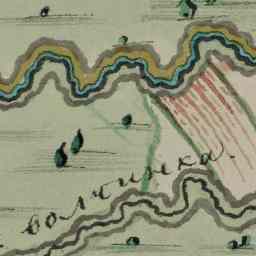 волчинка.